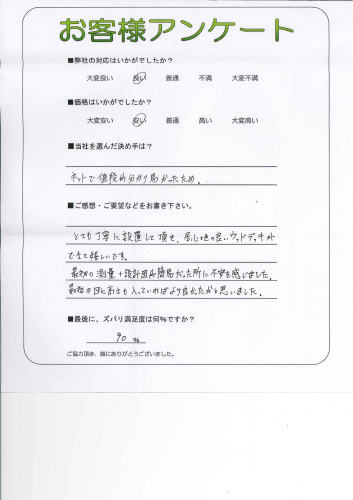 お客様アンケート
■弊社の対応はいかがでしたか？
大変良い 良い 普通 不満 大変不満
■価格はいかがでしたか？
大変安い 安い 普通 高い 大変高い
■当社を選んだ決め手は？
ネットで値段が分かり易かったため。
■ご感想・ご要望などをお書き下さい。
とても丁寧に設置して頂き、居心地の良いウッドデッキが
できて嬉しいです。
最初の測量＋設計図が簡易だった所に不安を感じました。
最初の図に高さも入っていればより良かったかと思いました。
■最後に、ズバリ満足度は何％ですか？
90 %
ご協力頂き、誠にありがとうございました。